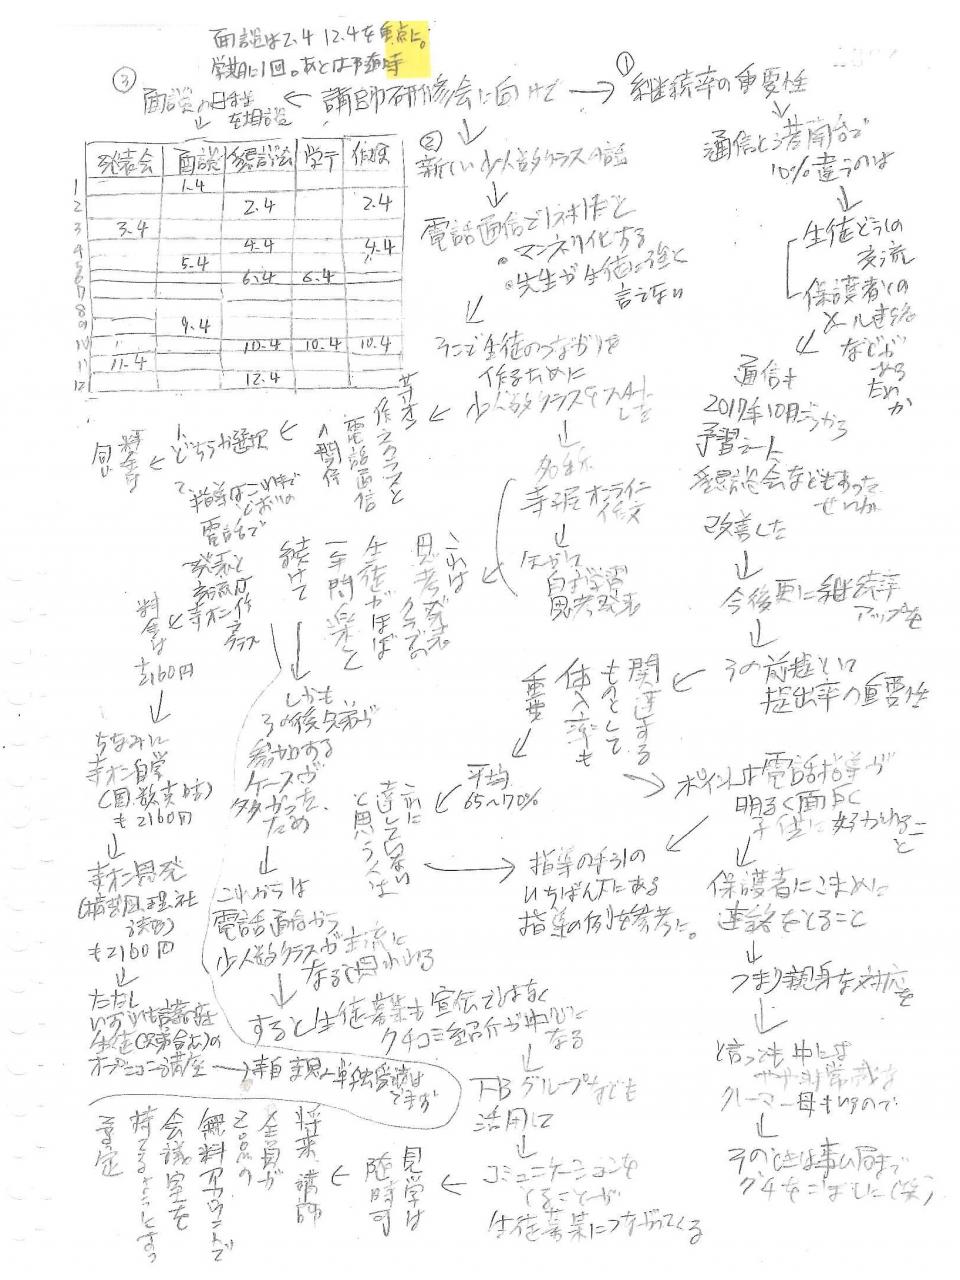 面談は2.4 12.4を重点に。
学期に1回。あとは予適時
③
面談の日程
を相談
← 講師研修会に向けて →
① 継続率の重要性
発表会 面談 懇談会 学テ 作検
1 1.4
2 2.4 2.4
3 3.4
4 4.4 4.4
5 5.4
6 6.4 6.4
7
8
9 9.4
10 10.4 10.4 10.4
11 11.4
12 12.4
通信と港南台で
10%違うのは
生徒どうしの
交流
保護者との
メール連絡
などが
ある
ため
か
通信も
2017年10月ごろから
予習シート
懇談会などもあった
せいか
改善した
今後更に継続率
アップを
その前提として
提出率の重要性
関連する
ものとして
体入率も
重要
平均
65~70%
これに
達していない
と思う人は
ポイントは電話指導が
明るく面白く
子供に好かれるこ
と
指導の手引の
いちばん下にある
指導の例を参考に。
保護者にこまめに
連絡をとること
つまり親身な対応を
と言っても中には
クレーマー母もいるので
そのときは事ム局まで
グチをこぼしに(笑)
②
新しい少人数クラスの話
電話通信で1対1だと
・マンネリ化する
・先生が生徒に強く
言えない
そこで生徒のつながりを
作るために
少人数クラスをスタート
した
名称
寺子屋オンライン
作文
自主学習
思考発表
これは
思考発表
クラスでの
生徒がほぼ
一年間楽しく
続けて
しかも
その後兄弟が
参加する
ケースが
多かった
ため
これからは
電話通信から
少人数クラスが主流に
なると思われる
すると生徒募集も宣伝ではなく
クチコミ紹介が中心に
なる
FBグループなども
活用して
コミュニケーションを
とることが
生徒募集につながってくる
見学は
随時可
将来講師
全員が
Zoomの
無料アカウントで
会議室を
持てるようにする
予定
寺オン
作文クラスと
電話通信
の関係
どちらか選択
指導はこれまで
どおりの
電話で
発表と
交流は
寺オン作
文クラス
料金は
+2160円
ちなみに
寺オン自学
(国、数、英、時)
も2160円
寺オン思発
も2160円
ただし
いずれも言葉の森
生徒(兄弟含む)の
オプション講座
→寺自、寺思の単独受講は
できず